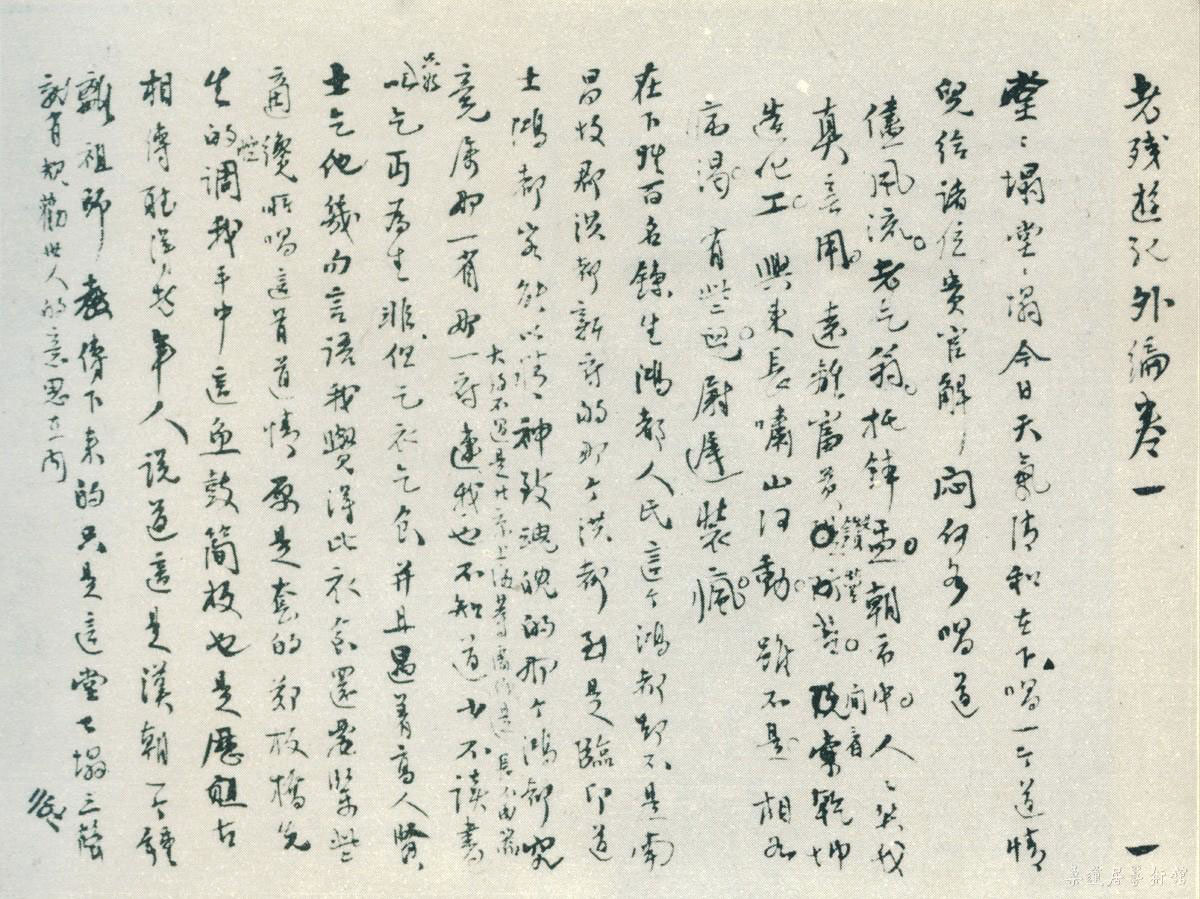 老残遊记外编卷一
一
堂〻塌堂〻塌今日天氣清和在下唱一个道情
兒给诸位贵官解〻闷何如唱道
儘風流。老乞翁。托钵盂。朝市中。人〻笑我
真無用。遠離富貴鑽營苦。闲看乾坤
造化工。興来長嘯山河動。雖不是相如
病渴。有些兒尉遲裝瘋。
在下姓百名鍊生鴻都人氏這个鴻都卻不是南
昌故郡洪都新府的那个洪都到是臨卬道
士鴻都客能以精神致魂魄的那个鴻都究
竟属那一省那一府連我也不知道大約不過是北京上海等處便是少不读書
長不成器
只好
以乞丐為生非但乞衣乞食并且遇着高人賢
士乞他幾句言語我覺得比衣食還要緊些
適纔所唱這首道情原是套的郑板橋先
生的調我手中這魚鼓簡板也是歷祖古
相傳聽得老年人説道這是漢朝一个鍾
離祖師教傳下来的只是這堂〻塌三聲
就有規勸世人的意思在内
集蘊居藝術館